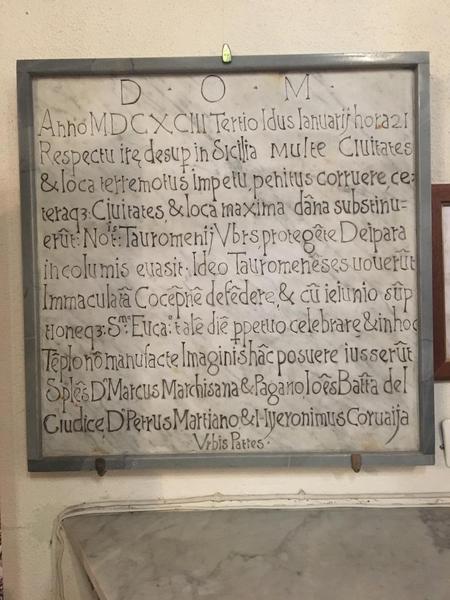 D · O · M ·
Anno MDCXCIII Tertio Idus Ianuarij hora 21
Respectu irę desup in Sicilia Multe Ciuitates
& loca terremotus impetu, penitus corruere, ce-
teraqȝ: Ciuitates, & loca maxima dãna substinu-
erũt: Tauromenij Vbrs protegẽte Deipara
incolumis euasit. Ideo Tauromenẽses uouerũt
Immaculatã Cõcepñẽ defẽdere, & cũ ieiunio sũp
tioneqȝ: Sᵐᵉ Euca: talẽ diẽ ppetuo celebrare, & in hoc
Tẽplo nõ manufacte Imaginis hãc posuere iusserũt
Splẽs Dʳ Marcus Marchisana & Pagano Ioẽs Batta del
Giudice, Dʳ Petrus Martiano & Hijeronimus Coruaija
Vrbis Patres·